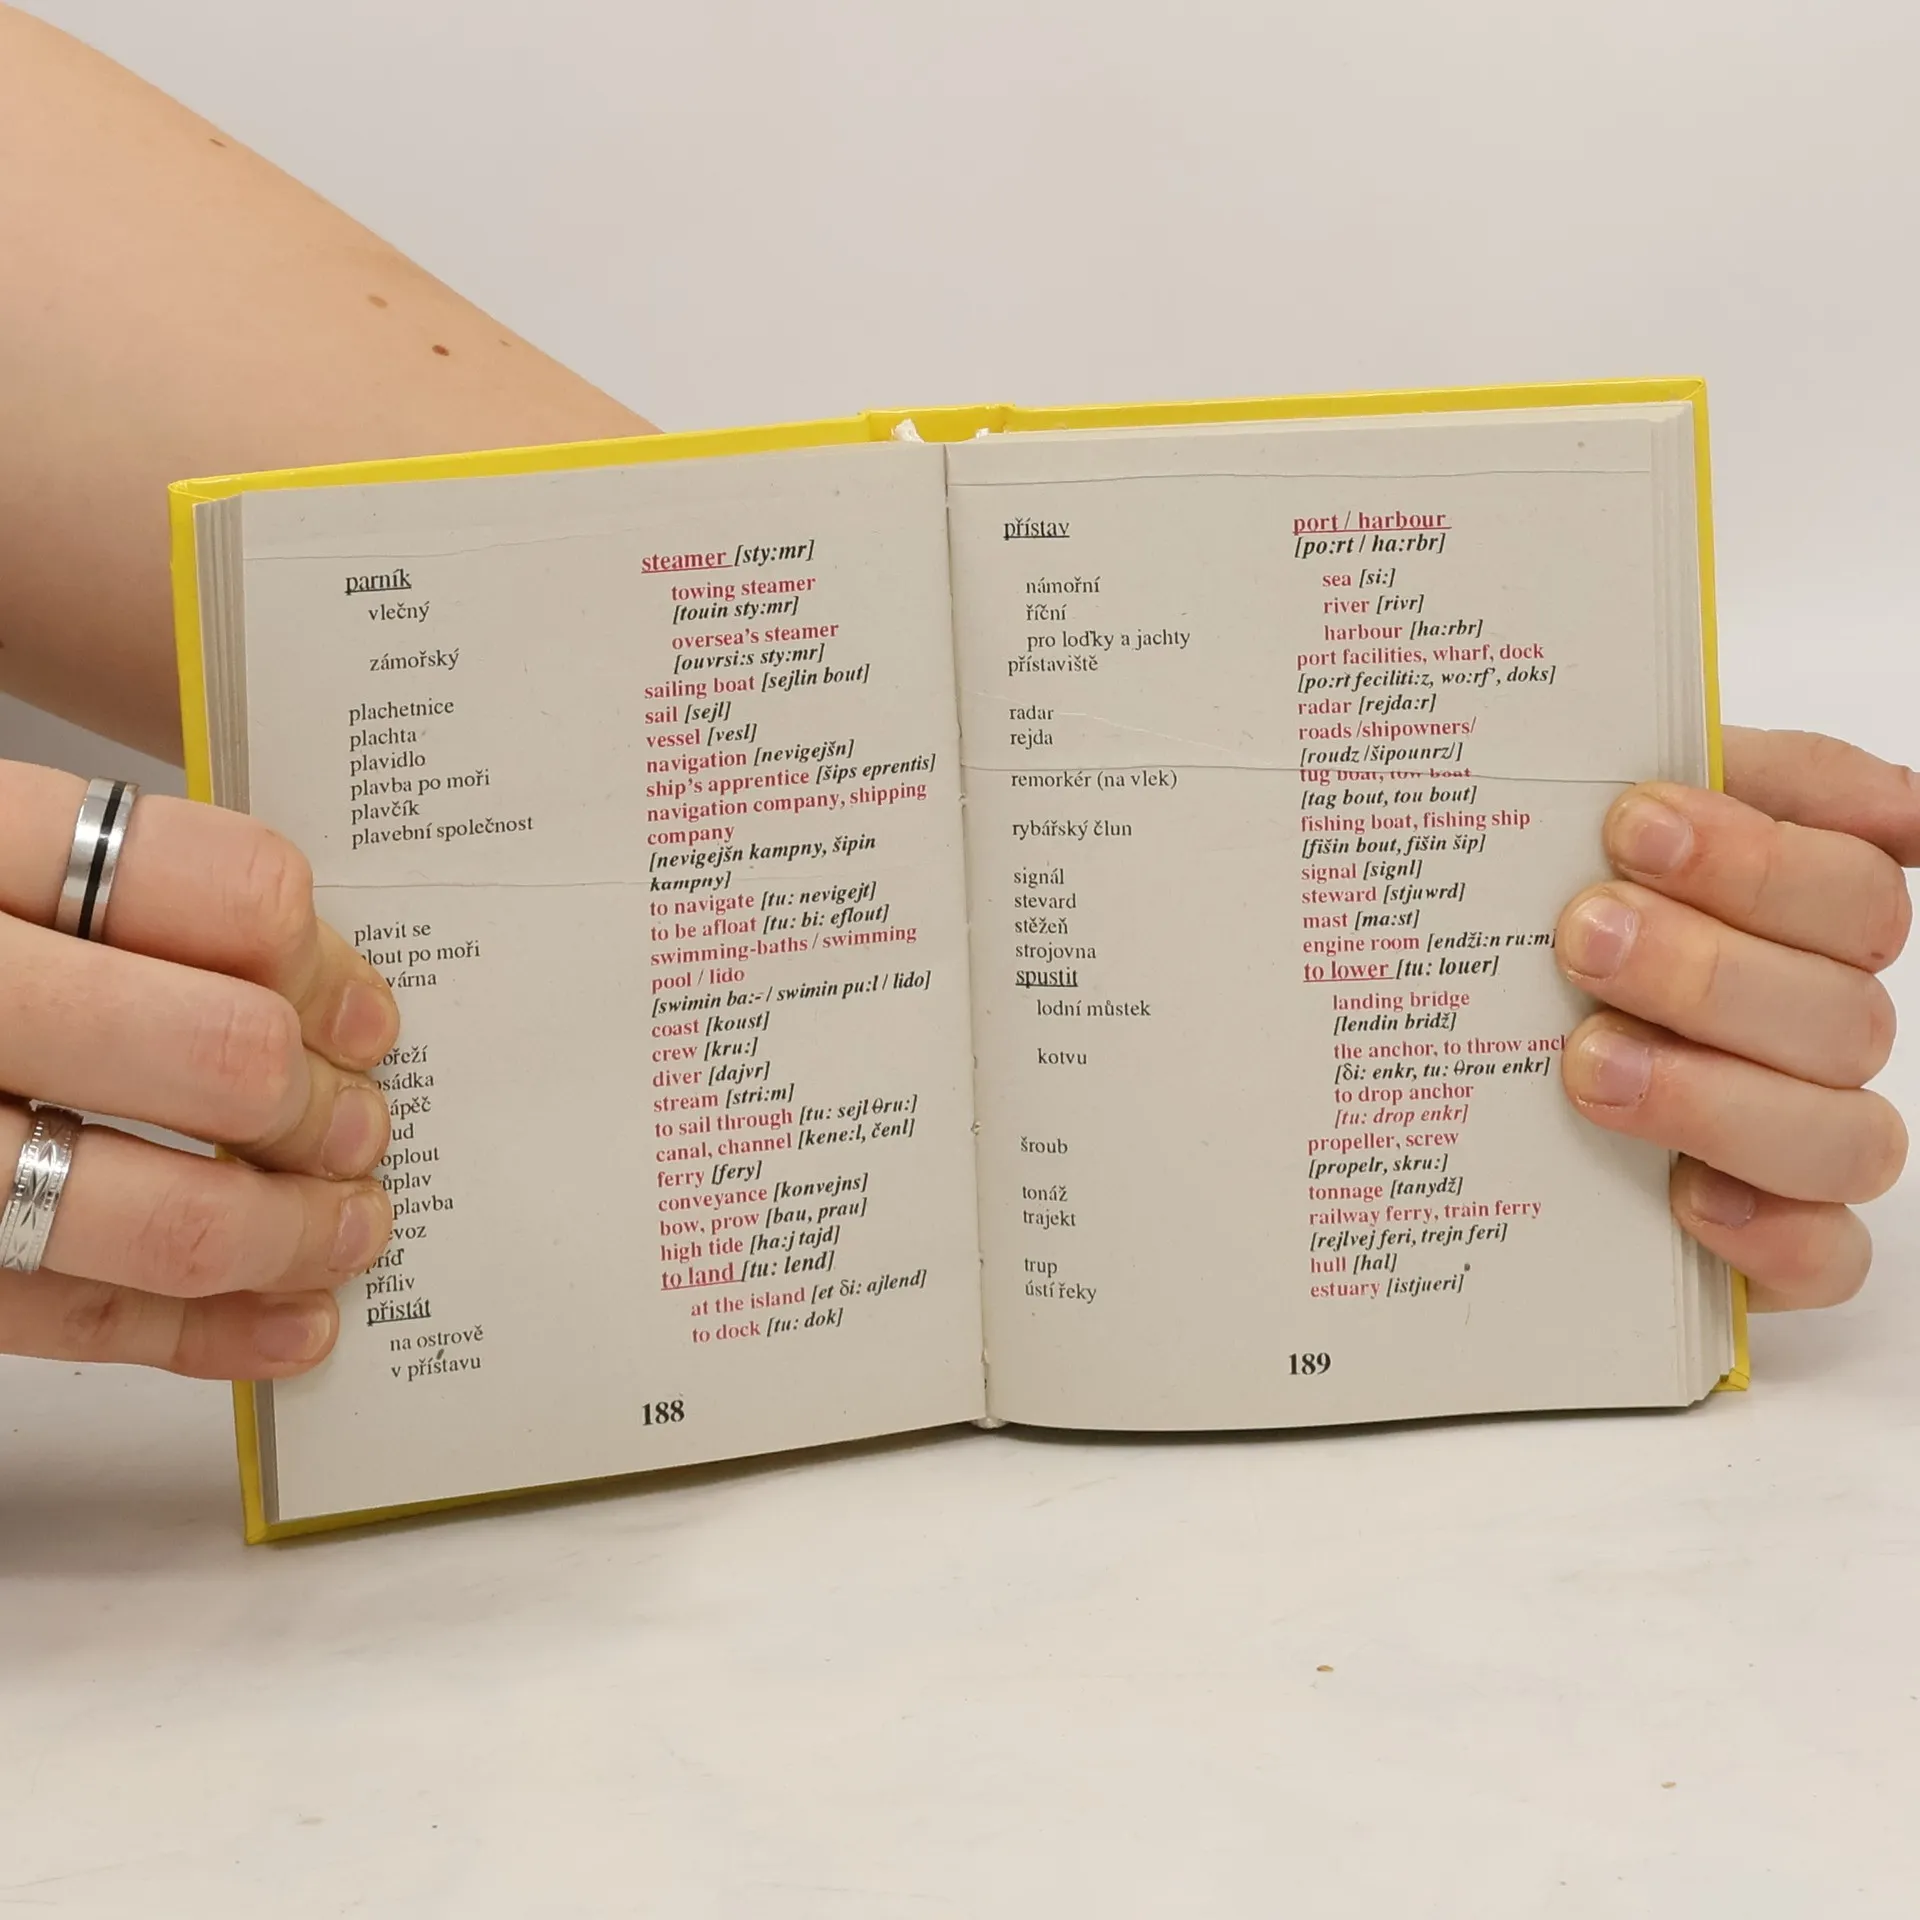 parník steamer [sty:mr]
vlečný towing steamer
[touin sty:mr]
oversea's steamer
zámořský [ouvrsi:s sty:mr]
plachetnice sailing boat [sejlin bout]
plachta sail [sejl]
plavidlo vessel [vesl]
plavba po moři navigation [nevigejšn]
plavčík ship's apprentice [šips eprentis]
plavební společnost navigation company, shipping
company
[nevigejšn kampny, šipin
kampny]
plavit se to navigate [tu: nevigejt]
po moři to be afloat [tu: bi: eflout]
swimming-baths / swimming
pool / lido
[swimin ba:- / swimin pu:l / lido]
coast [koust]
crew [kru:]
diver [dajvr]
stream [stri:m]
to sail through [tu: sejl θru:]
canal, channel [kene:l, čenl]
ferry [fery]
conveyance [konvejns]
bow, prow [bau, prau]
příliv high tide [ha:j tajd]
přistát to land [tu: lend]
na ostrově at the island [et δi: ajlend]
v přístavu to dock [tu: dok]
188
přístav port / harbour
[po:rt / ha:rbr]
námořní sea [si:]
říční river [rivr]
pro loďky a jachty harbour [ha:rbr]
přístaviště port facilities, wharf, dock
[po:rt feciliti:z, wo:rf', doks]
radar radar [rejda:r]
rejda roads /shipowners/
[roudz /šipounrz/]
remorkér (na vlek) tug boat, tow boat
[tag bout, tou bout]
rybářský člun fishing boat, fishing ship
[fišin bout, fišin šip]
signál signal [signl]
stevard steward [stjuwrd]
stěžeň mast [ma:st]
strojovna engine room [endži:n ru:m]
spustit to lower [tu: louer]
lodní můstek landing bridge
[lendin bridž]
kotvu the anchor, to throw
[δi: enkr, tu: θrou enkr]
to drop anchor
[tu: drop enkr]
šroub propeller, screw
[propelr, skru:]
tonáž tonnage [tanydž]
trajekt railway ferry, train ferry
[rejlvej feri, trejn feri]
trup hull [hal]
ústí řeky estuary [istjueri]
189